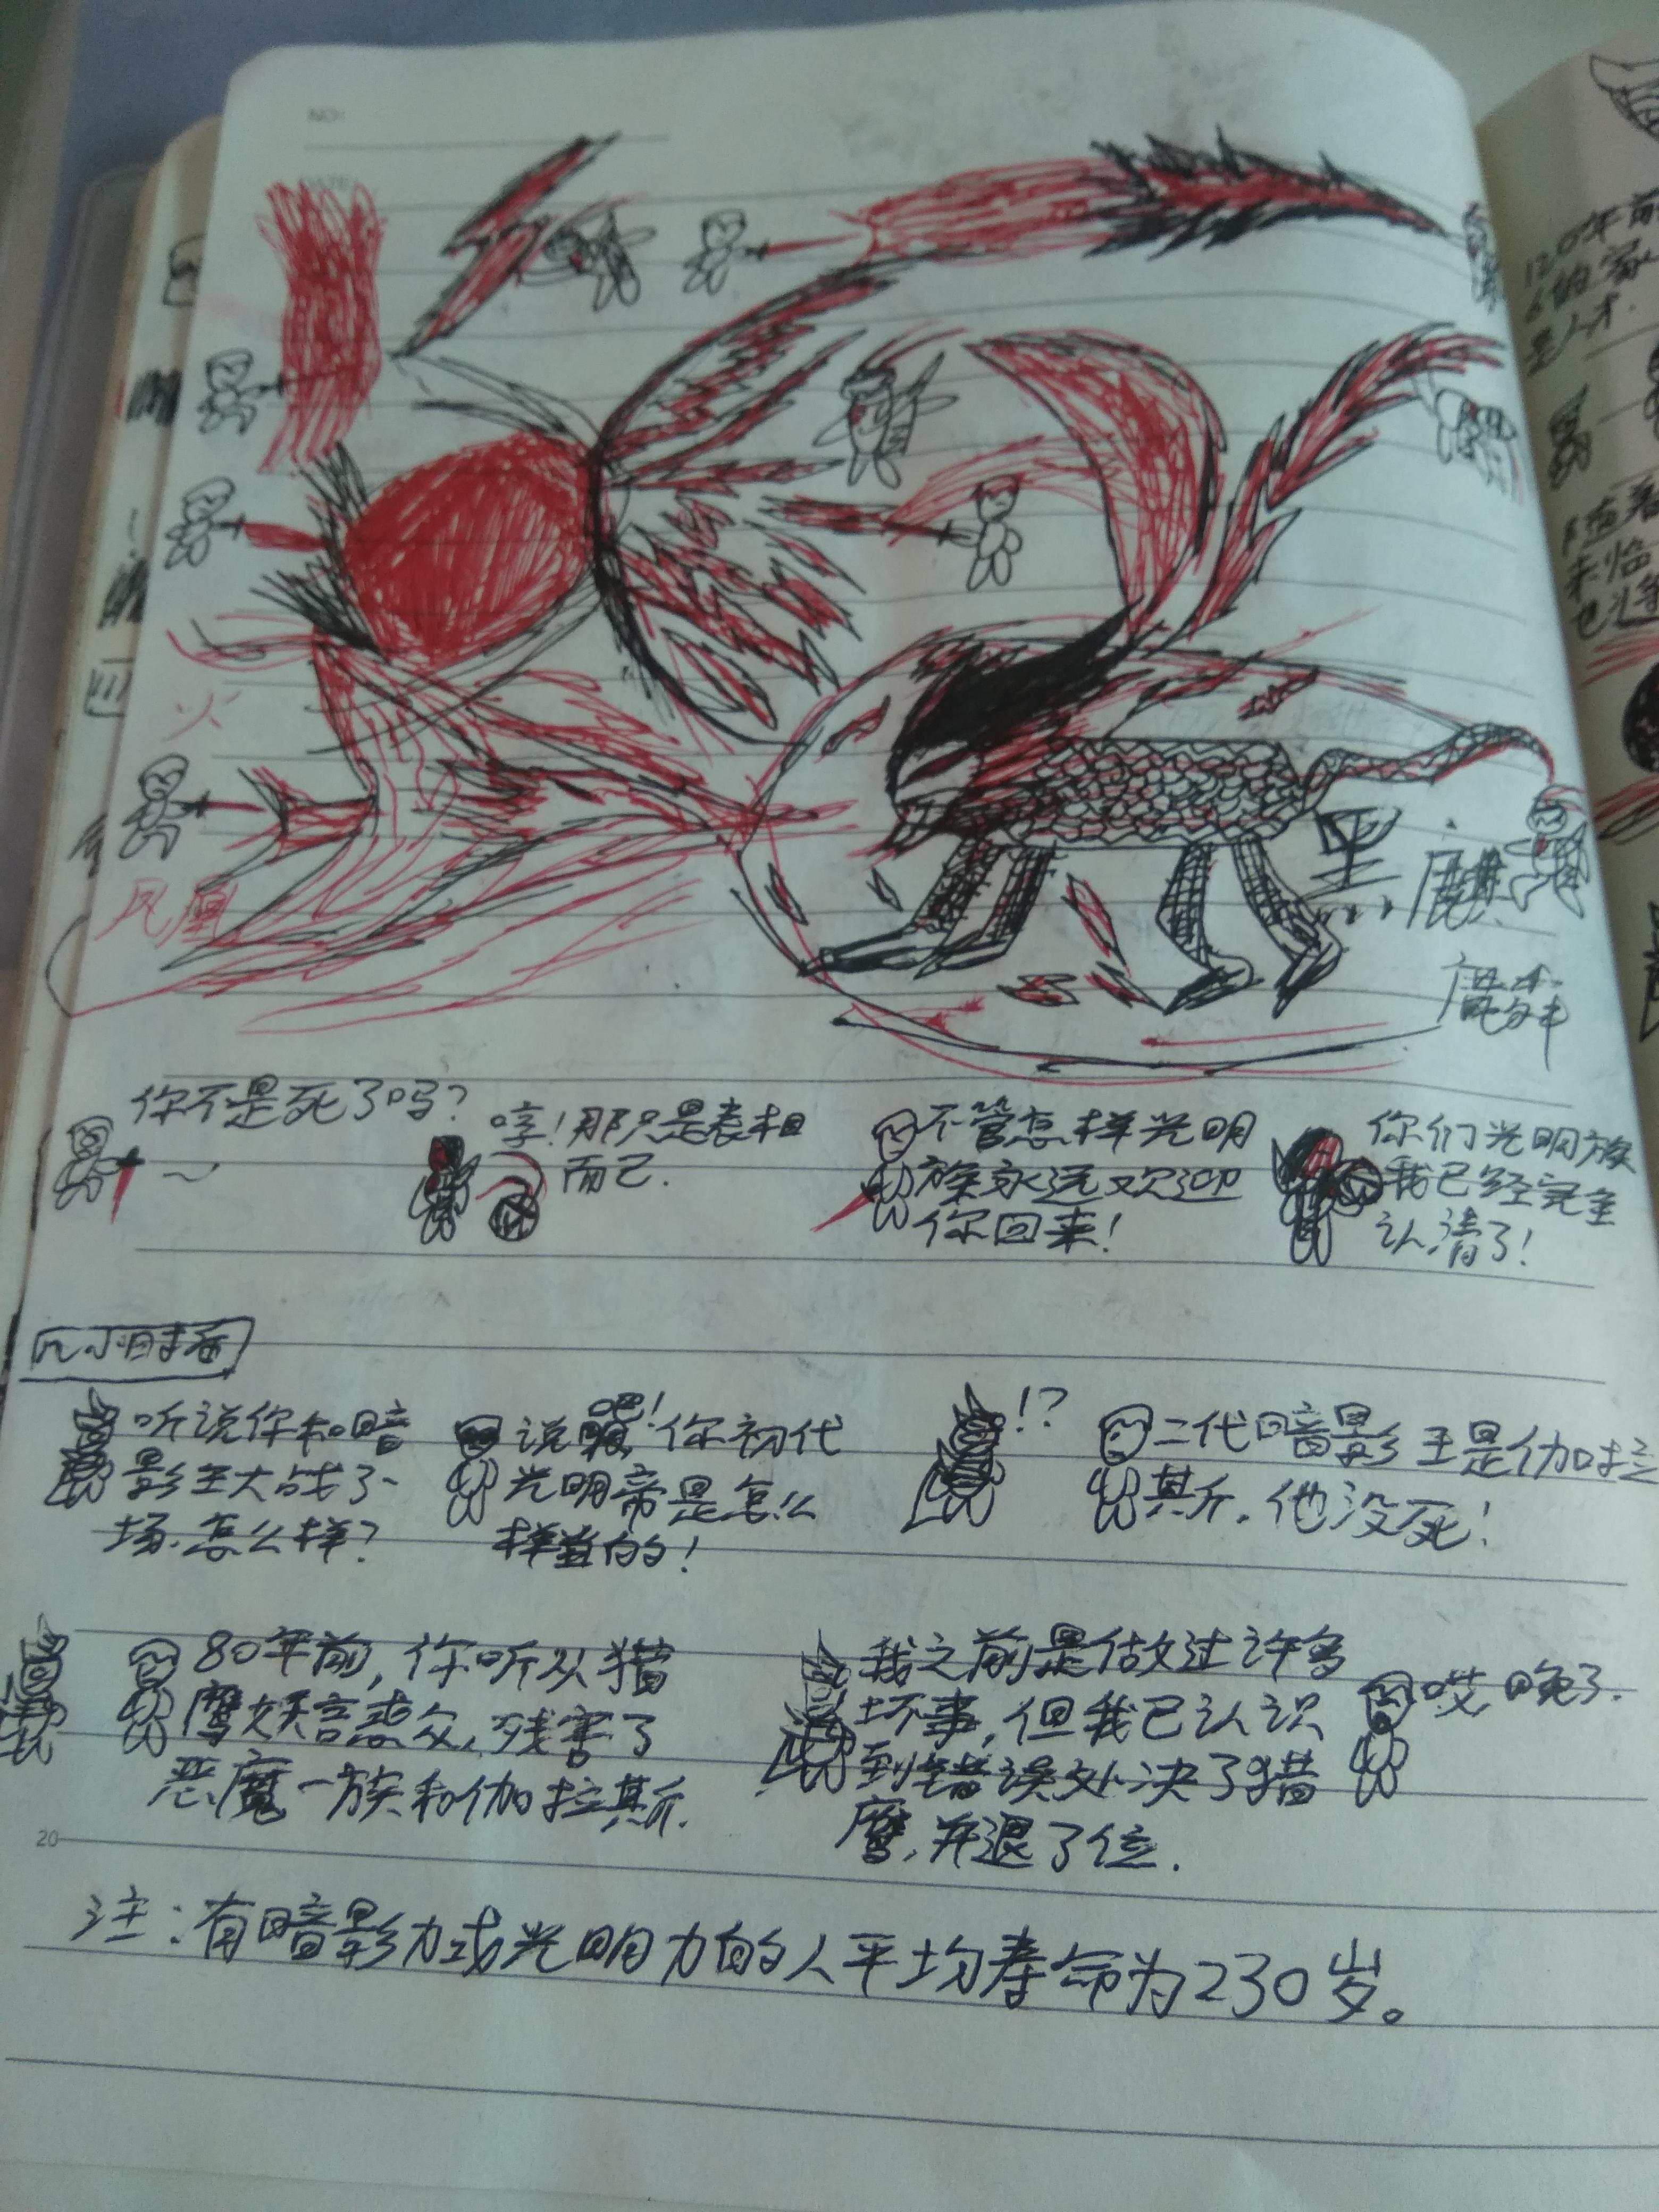 NO:
火
凤凰
黑
麒
麟
你不是死了吗?
哼!那只是表相
而己.
不管怎样光明
族永远欢迎
你回来!
你们光明族
我已经完全
认清了!
听说你和暗
影王大战了一
场.怎么样?
说吧!你初代
光明帝是怎么
样当的!
!?
二代暗影王是伽拉
其斤.他没死!
80年前,你听从猎
鹰妖言惑众,残害了
恶魔一族和伽拉其斤.
我之前是做过许多
坏事,但我已认识
到错误处决了猎
鹰,并退了位.
哎,晚了.
20
注:有暗影力或光明力的人平均寿命为230岁。
120年前